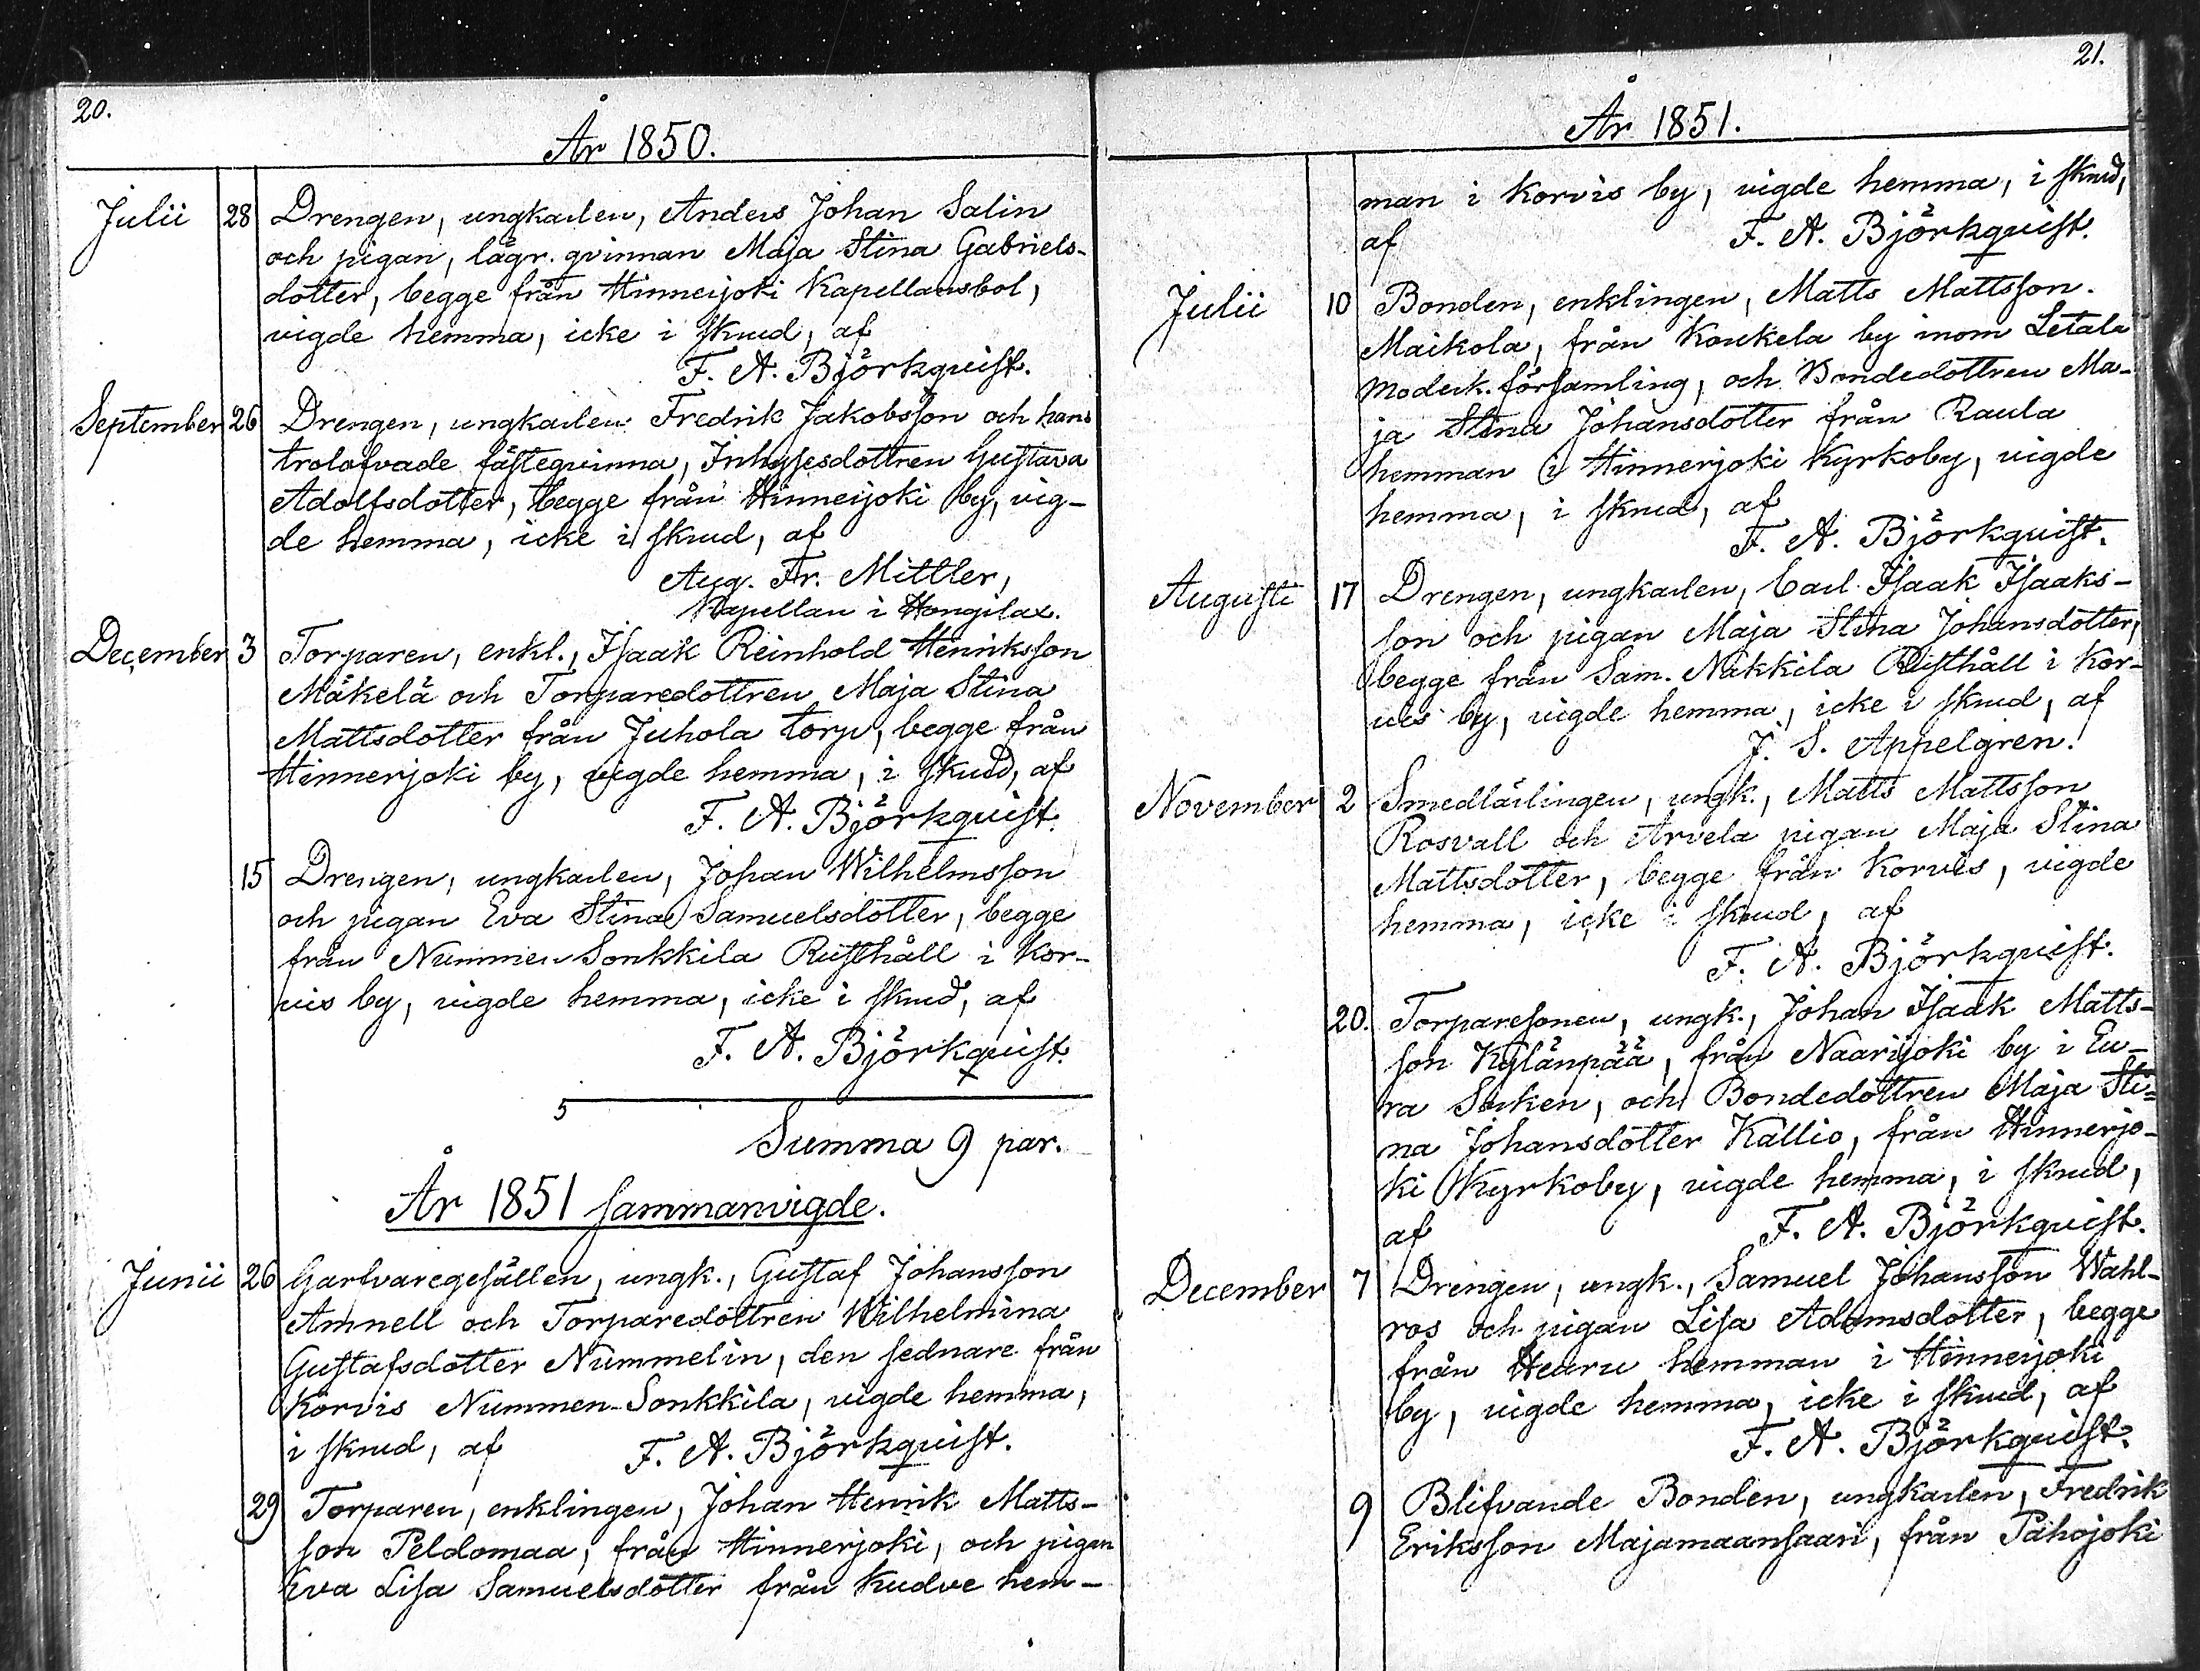 20.
År 1850.
Julii 28 Drengen, ungkarlen, Anders Johan Salin
och pigan, lägr. qvinnan Maja Stina Gabriels-
dotter, begge från Hinnerjoki Kapellansbol,
vigde hemma, icke i skrud, af
F. A. Björkquist.
September 26 Drengen, ungkarlen Fredrik Jakobsson och hans
trolofvade fästeqvinna, Inhysesdottren Gustava
Adolfsdotter, begge från Hinnerjoki by, vig-
de hemma, icke i skrud, af
Aug. Fr. Mittler,
Kapellan i Hongilax.
December 3 Torparen, enkl., Isaak Reinhold Henriksson
Mäkelä och Torparedottren Maja Stina
Mattsdotter från Juhola torp, begge från
Hinnerjoki by, vigde hemma, i skrud, af
F. A. Björkquist.
15 Drengen, ungkarlen, Johan Wilhelmsson
och pigan Eva Stina Samuelsdotter, begge
från Nummen Sonkkila Rusthåll i Kor-
vis by, vigde hemma, icke i skrud, af
F. A. Björkquist.
5
Summa 9 par.
År 1851 sammanvigde.
Junii 26 Garfvaregesällen, ungk., Gustaf Johansson
Amnell och Torparedottren Wilhelmina
Gustafsdotter Nummelin, den sednare från
Korvis Nummen-Sonkkila, vigde hemma,
i skrud, af F. A. Björkquist.
29 Torparen, enklingen, Johan Henrik Matts-
son Peldomaa, från Hinnerjoki, och pigan
Eva Lisa Samuelsdotter från Kudve hem-
21.
År 1851.
man i Korvis by, vigde hemma, i skrud,
af F. A. Björkquist.
Julii 10 Bonden, enklingen, Matts Mattsson
Maikola, från Koukela by inom Letala
Moderk. församling, och Bondedottren Ma-
ja Stina Johansdotter från Raula
hemman i Hinnerjoki Kyrkoby, vigde
hemma, i skrud, af
F. A. Björkquist.
Augusti 17 Drengen, ungkarlen, Carl Isaak Isaaks-
son och pigan Maja Stina Johansdotter,
begge från Sam. Näkkilä Rusthåll i Kor-
vis by, vigde hemma, icke i skrud, af
J. S. Appelgren.
November 2 Smedlärlingen, ungk., Matts Mattsson
Rosvall och Arvela pigan Maja Stina
Mattsdotter, begge från Korvis, vigde
hemma, icke i skrud, af
F. A. Björkquist.
20. Torparesonen, ungk., Johan Isaak Matts-
son Kylänpää, från Naarijoki by i Eu-
ra Socken, och Bondedottren Maja Sti=
na Johansdotter Kallio, från Hinnerjo-
ki Kyrkoby, vigde hemma, i skrud,
af F. A. Björkquist.
December 7 Drengen, ungk., Samuel Johansson Wahl-
ros och pigan Lisa Adamsdotter, begge
från Heuru hemman i Hinnerjoki
by, vigde hemma, icke i skrud, af
F. A. Björkquist.
9 Blifvande Bonden, ungkarlen, Fredrik
Eriksson Majamaansaari, från Pahojoki